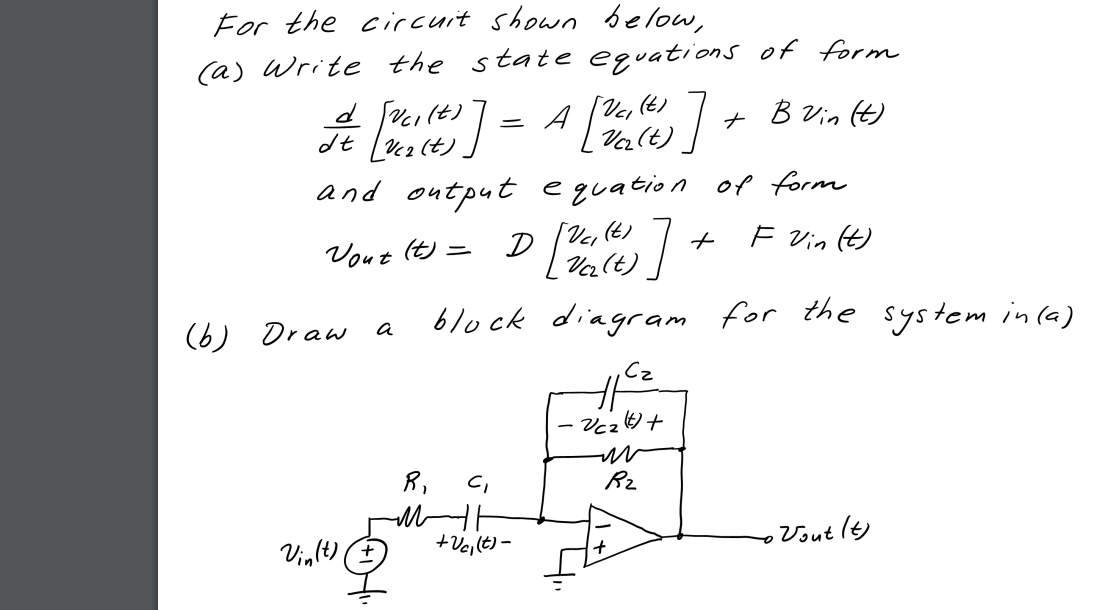 For the circuit shown below,
(a) Write the state equations of form
d/dt [vc1(t) vc2(t)] = A [vc1(t) vc2(t)] + B vin(t)
and output equation of form
vout(t) = D [vc1(t) vc2(t)] + F vin(t)
(b) Draw a block diagram for the system in (a)
C2
- vc2(t) +
R2
R1 C1
+ vc1(t) -
vin(t) + -
- +
vout(t)